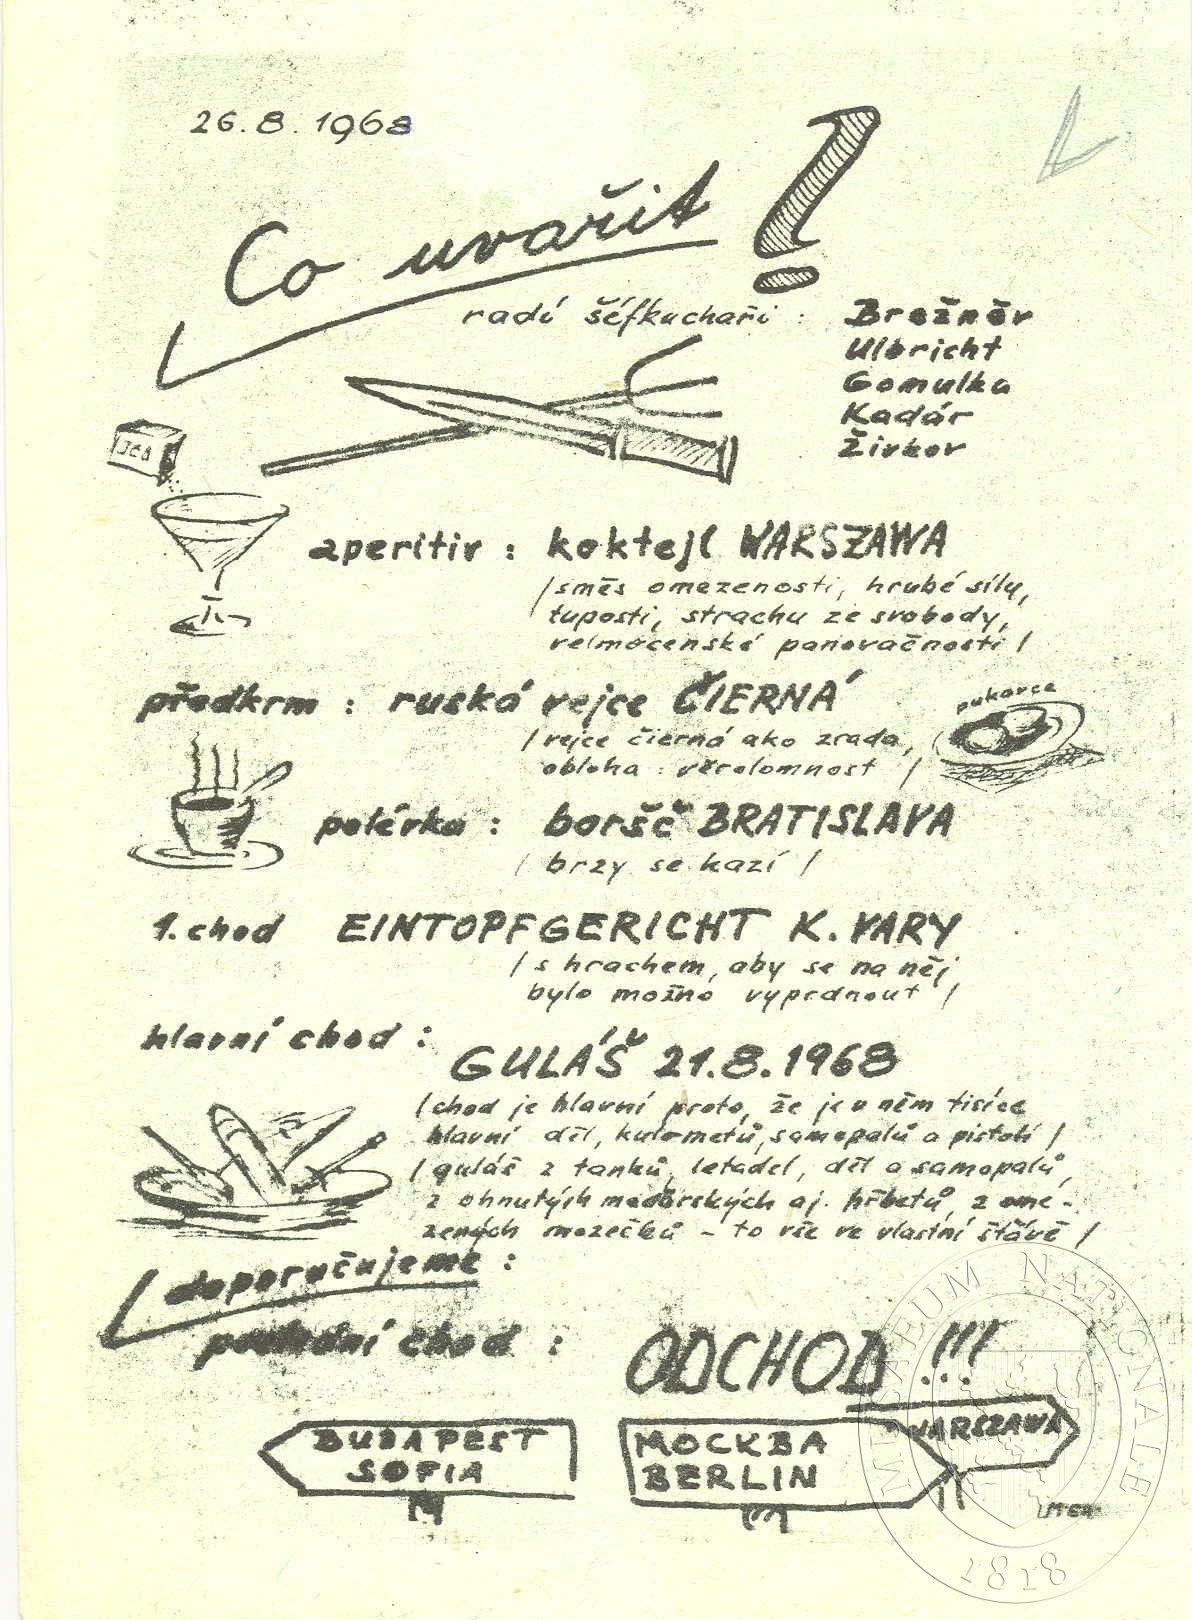 26.8.1968
Co uvařit?
radí šéfkuchaři : Brežněv
Ulbricht
Gomulka
Kadár
Živkov
JED
aperitiv : koktejl WARSZAWA
/směs omezenosti, hrubé síly,
tuposti, strachu ze svobody,
velmocenské panovačnosti/
předkrm : ruská vejce ČIERNÁ
pukavce
/vejce čierná ako zrada,
obloha : věrolomnost /
polévka : boršč BRATISLAVA
/ brzy se kazí /
1. chod EINTOPFGERICHT K. VARY
/s hrachem, aby se na něj
bylo možno vyprdnout /
hlavní chod :
GULÁŠ 21.8.1968
/chod je hlavní proto, že je v něm tisíce
hlavní děl, kulometů, samopalů a pistolí /
/guláš z tanků, letadel, děl a samopalů,
z ohnutých maďarských aj. hřbetů, z ome-
zených mozečků – to vše ve vlastní šťávě /
doporučujeme :
poslední chod : ODCHOD !!!
BUDAPEST
SOFIA
MOCKBA
BERLIN
WARSZAWA
MUSEUM NATIONALE
1818